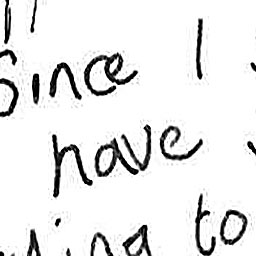 Since I
have
to